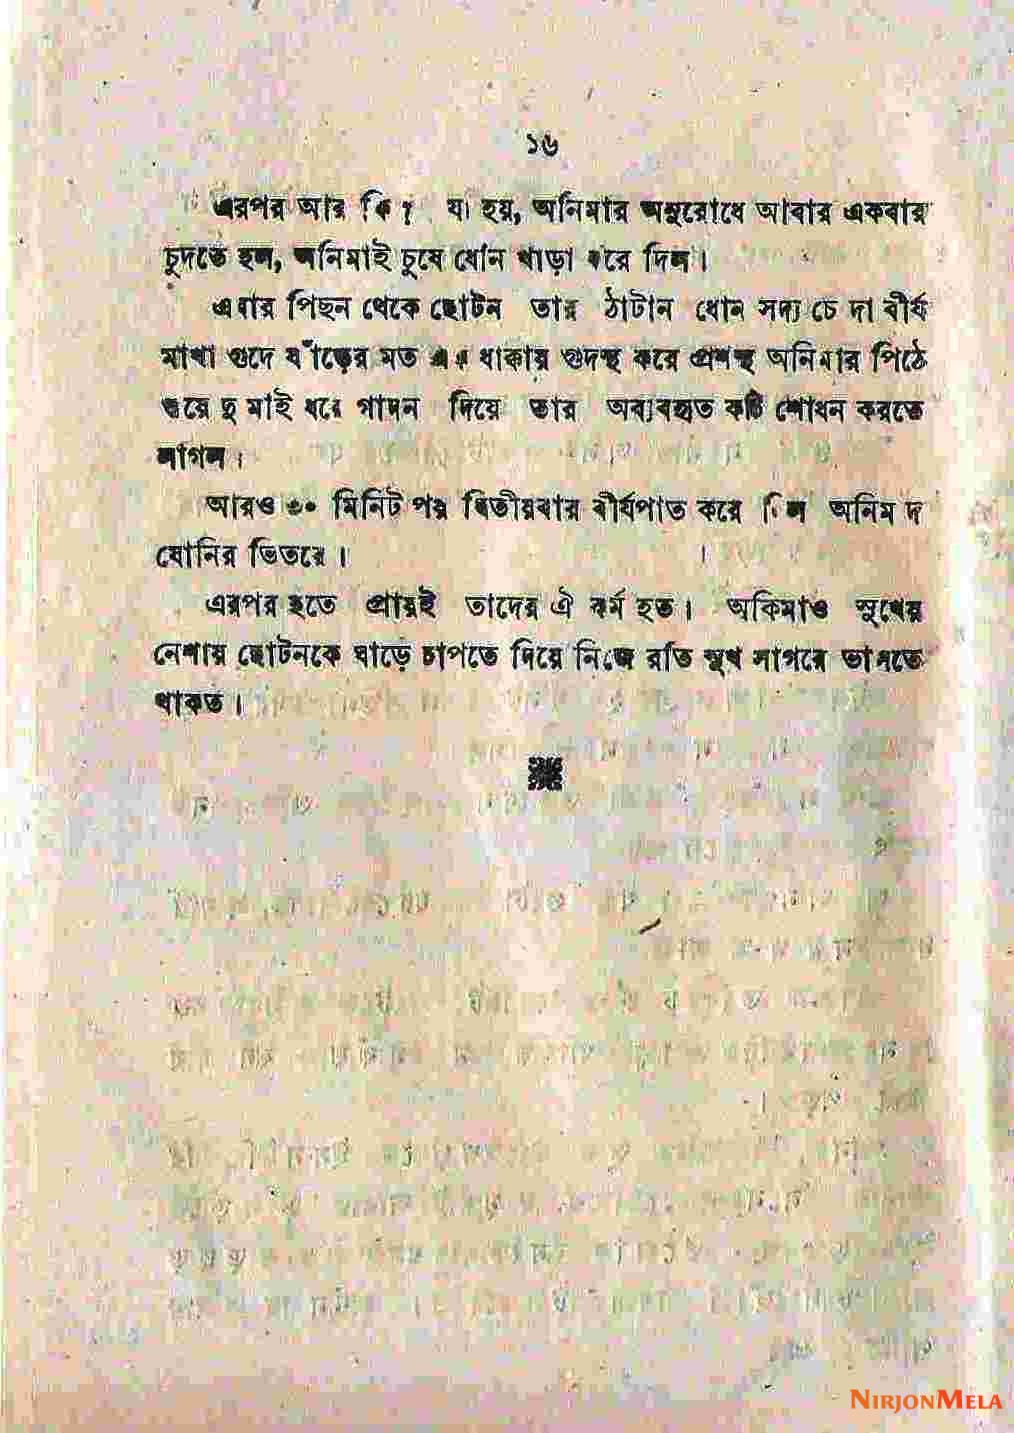 ১৬
এরপর আর কি? যা হয়, অনিমার অনুরোধে আবার একবার
চুদতে হল, অনিমাই চুষে ধোন খাড়া করে দিল।
এবার পিছন থেকে ছোটন তার ঠাটান ধোন সদ্য চোদা বীর্য
মাখা গুদে ষাঁড়ের মত এক ধাক্কায় গুদস্থ করে প্রশস্থ অনিমার পিঠে
শুয়ে দু মাই ধরে গাদন দিয়ে তার অব্যবহৃত কটি শোধন করতে
লাগল।
আরও ৩০ মিনিট পর দ্বিতীয়বার বীর্যপাত করে দিল
যোনির ভিতরে।
এরপর হতে প্রায়ই তাদের ঐ কর্ম হত। অকিমাও সুখের
নেশায় ছোটনকে ঘাড়ে চাপতে দিয়ে নিজে রতি সুখ সাগরে ভাসতে
থাকত।
NIRJONMELA